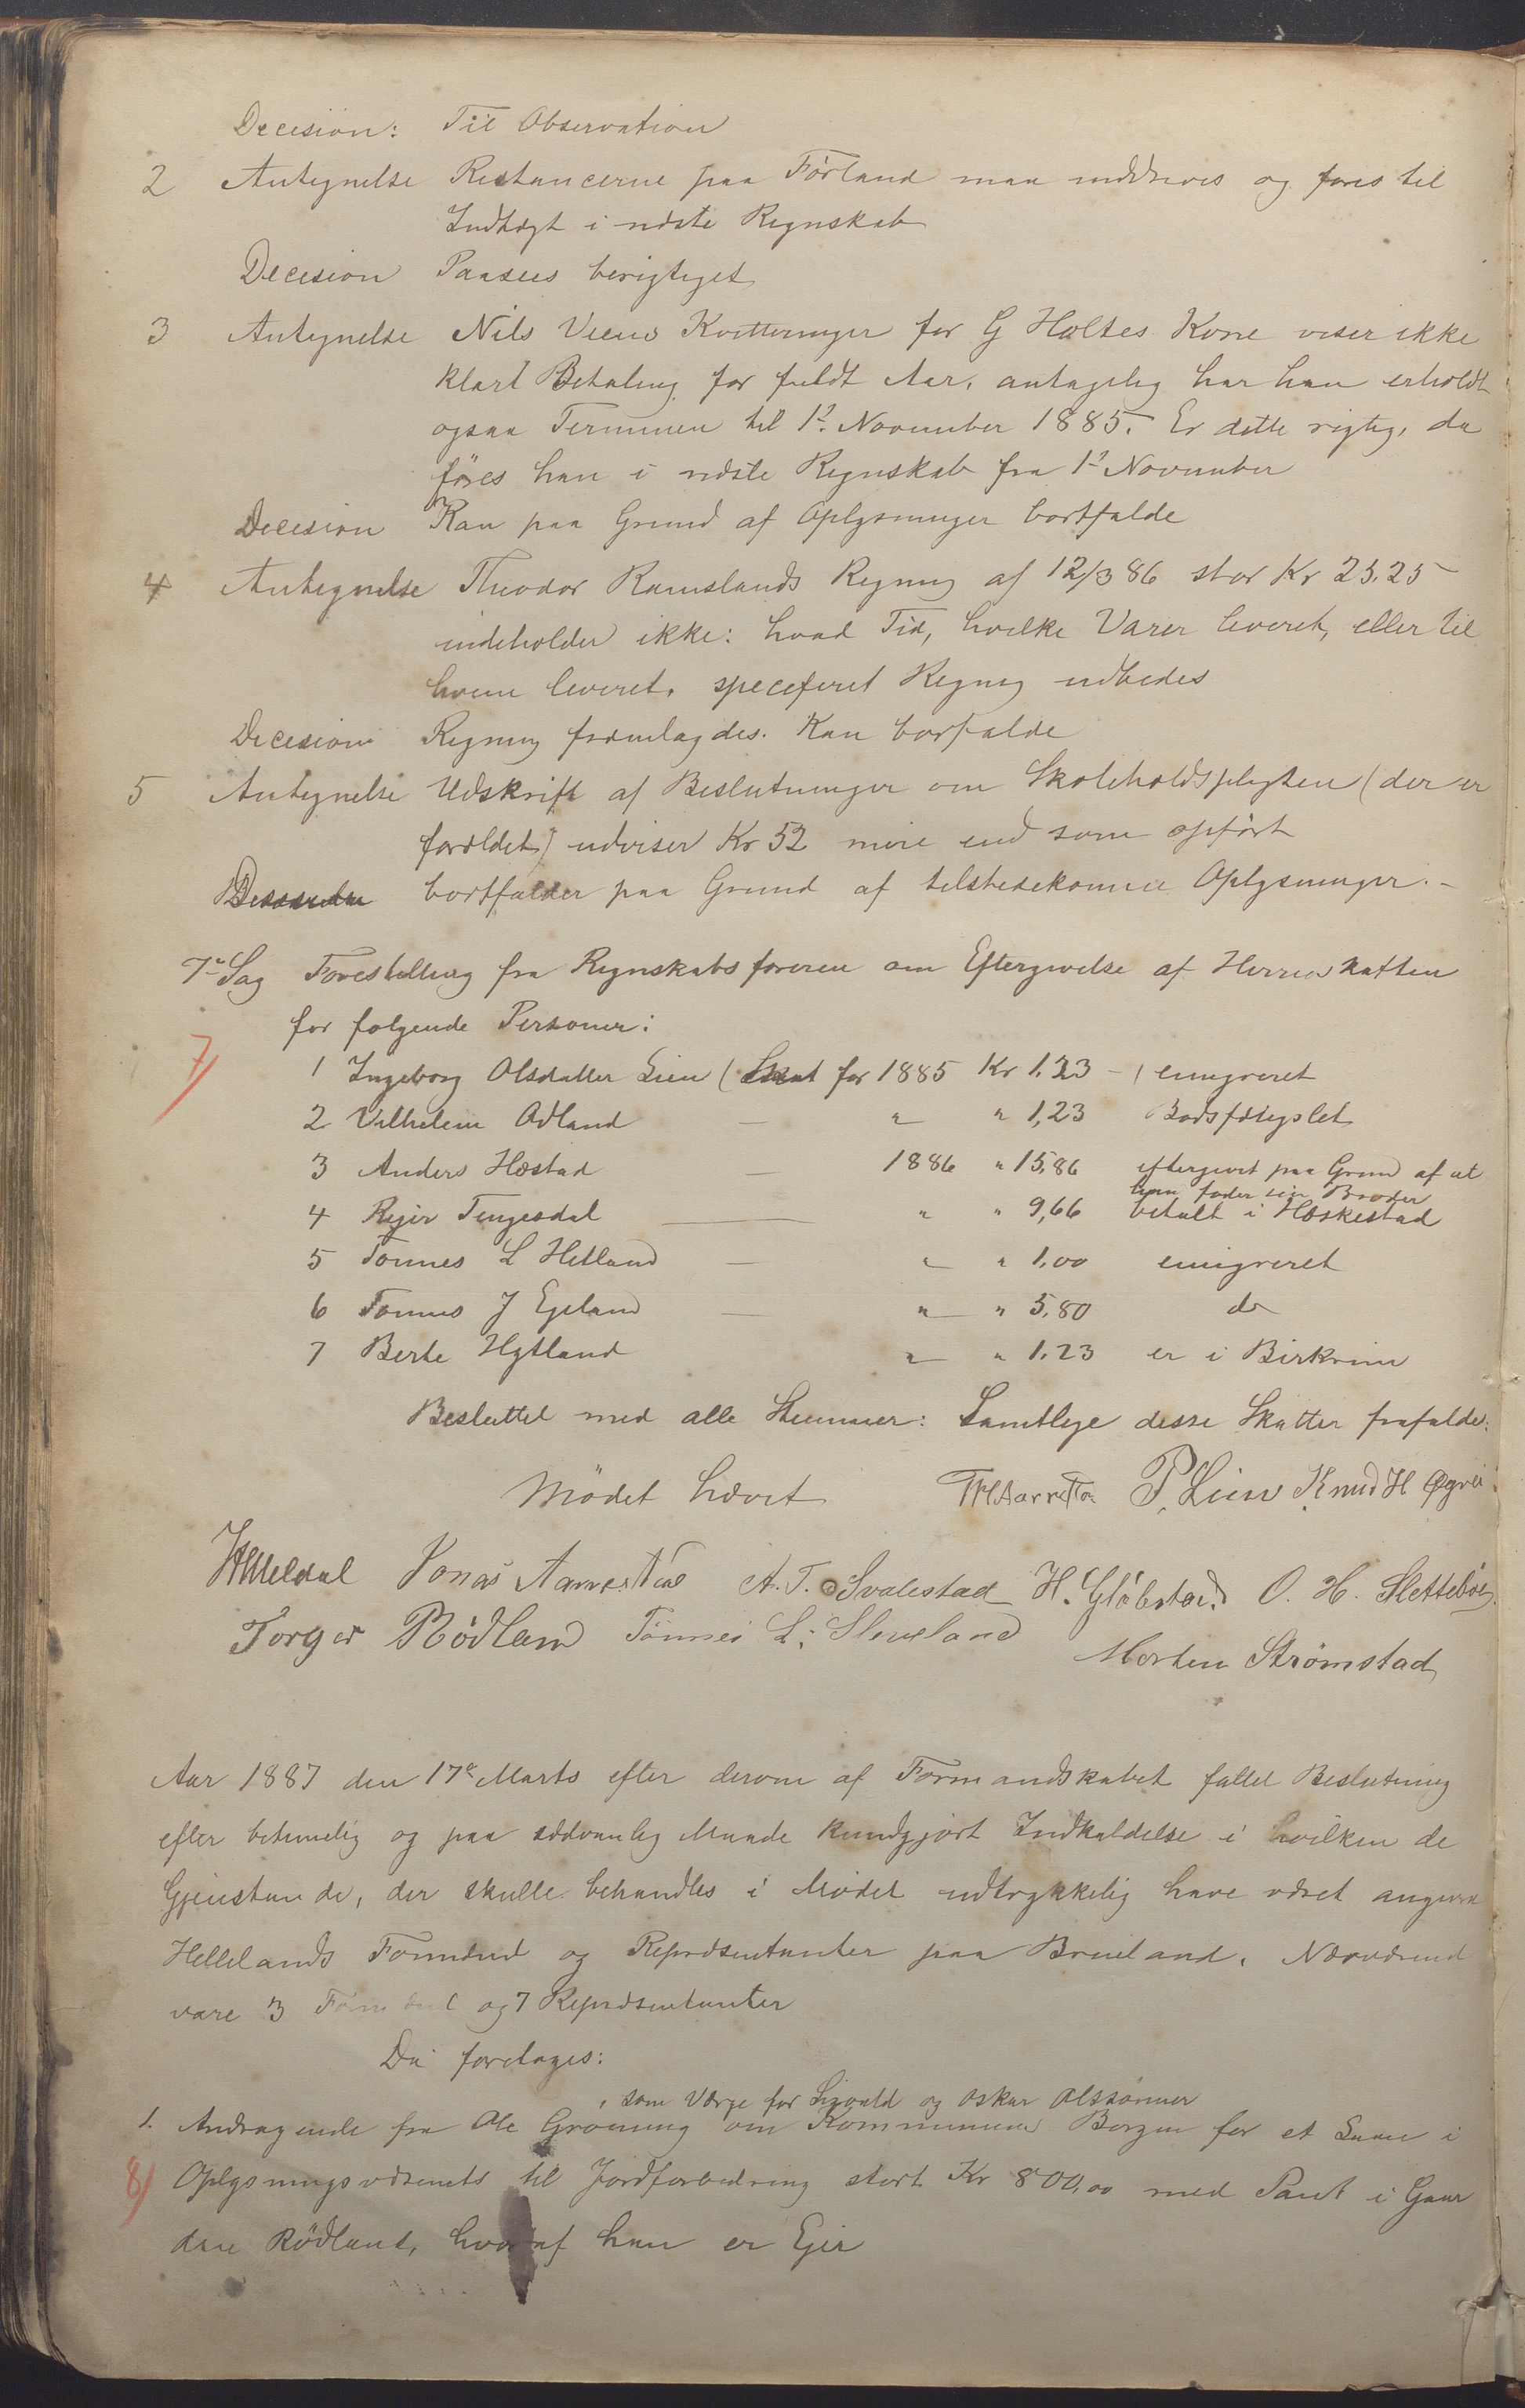 Decision: Til Observation
2 Antegnelse Restancerne paa Förland maa inddrives og föres til
Indtægt i næste Regnskab
Decision Paasees berigtiget
3 Antegnelse Nils Veens Kvitteringer for G Holtes Kone viser ikke
klart Betaling for fuldt Aar, antagelig har han erholdt
ogsaa Terminen til 1ste November 1885. Er dette rigtig, da
föres han i næste Regnskab fra 1ste November
Decision Kan paa Grund af Oplysninger bortfalde
4 Antegnelse Theodor Ramslands Regning af 12/3 86 stor Kr 25.25
indeholder ikke: hvad Tid, hvilke Varer leveret, eller til
hvem leveret, speceferet Regning udbedes
Decision Regning fremlagdes. Kan borfalde
5 Antegnelse Udskrift af Beslutninger om Skoleholdspligten (der er
foræeldet) udviser Kr 52 mere end som opført
bortfalder paa Grund af tilstedekomne Oplysninger.-
7de Sag Forestilling fra Regnskabsföreren om Eftergivelse af Herredskatten
for følgende Personer:
7/ 1 Ingeborg Olsdatter Lien (Skat for 1885 Kr 1.23 -) emigreret
2 Vilhelm Adland — " " 1,23 Bodsfængslet
3 Anders Hæstad — 1886 " 15,86 eftergivet paa Grund af at
han föder sin Broder
4 Rejer Tengesdal — " " 9,66 betalt i Heskestad
5 Tönnes L Hetland — " " 1,00 emigreret
6 Tönnes J Egeland — " " 5,80 do
7 Berte Hytland " " 1.23 er i Birkrem
Besluttet med alle Stemmer: Samtlige disse Skatter frafaldes.
Mödet hævet P. Lien Knud H Øgrei
Jonas Aamodt A. T. Svalestad H. Glöbstad. O. H. Slettebö
Torger Rödland Tönnes L. Sleveland
Morten Strømstad
Aar 1887 den 17de Marts efter derom af Formandskabet fattet Beslutning
efter betimelig og paa sædvanlig Maade kundgjort Indkaldelse i hvilken de
Gjenstande, der skulle behandles i Mödet udtrykkelig have været angivne
Hellelands Formænd og Repræsentanter paa Brueland. Nærværend
vare 3 Formænd og 7 Repræsentanter
Da foretoges:
, som Værge for Sigvald og Oskar Olssönner
1. Andragende fra Ole Grøning om Kommunens Borgen for et Laan i
8/ Oplysningsvæsenets til Jordforbedring stort Kr 800,00 med Pant i Gaar
den Rödland, hvoraf han er Ejer